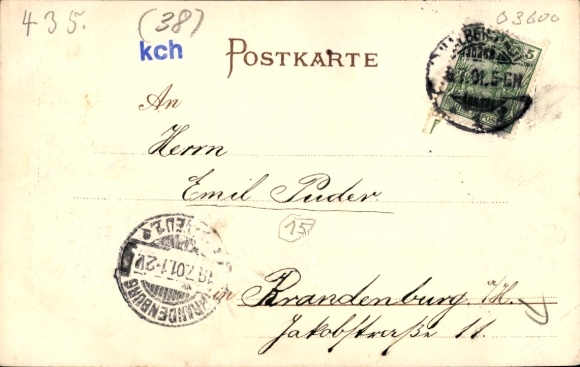 435.
(38)
03600
kch
POSTKARTE
5
An
Herrn
Emil Puder
15
in Brandenburg a/H.
Jakobstraße 11.
BRANDENBURG